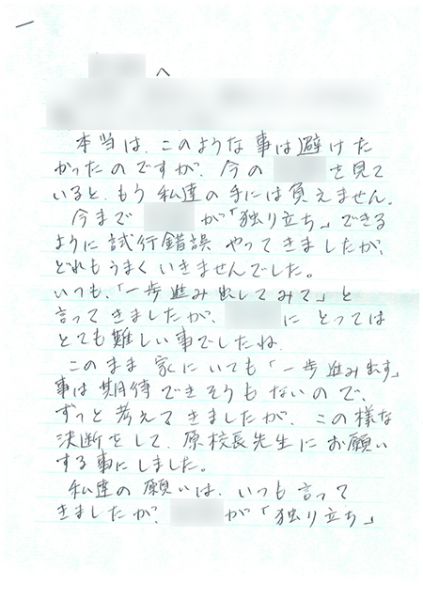 一
へ
本当は、このような事は避けた
かったのですが、今の を見て
いると、もう私達の手には負えません。
今まで が「独り立ち」できる
ように試行錯誤やってきましたが、
どれもうまくいきませんでした。
いつも、「一歩進み出してみて」と
言ってきましたが、 にとっては
とても難しい事でしたね。
このまま家にいても「一歩進み出す」
事は期待できそうもないので、
ずっと考えてきましたが、この様な
決断をして、原校長先生にお願い
する事にしました。
私達の願いは、いつも言って
きましたが、 が「独り立ち」